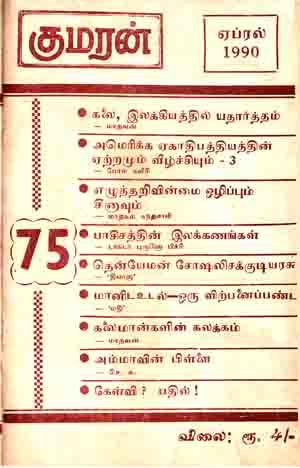 குமரன்
ஏப்ரல்
1990
கலை, இலக்கியத்தில் யதார்த்தம்
— மாதவன்
அமெரிக்க ஏகாதிபத்தியத்தின்
ஏற்றமும் வீழ்ச்சியும் - 3
எழுத்தறிவின்மை ஒழிப்பும்
சீனாவும்
75
பாசிசத்தின் இலக்கணங்கள்
தென்யேமன் சோஷலிசக்குடியரசு
மானிடஉடல்—ஒரு விற்பனைப்பண்ட
— 'மதி'
கலைமான்களின் கலக்கம்
— மாதவன்
அம்மாவின் பிள்ளை
— செ. க.
கேள்வி? பதில்!
விலை: ரூ. 4/-